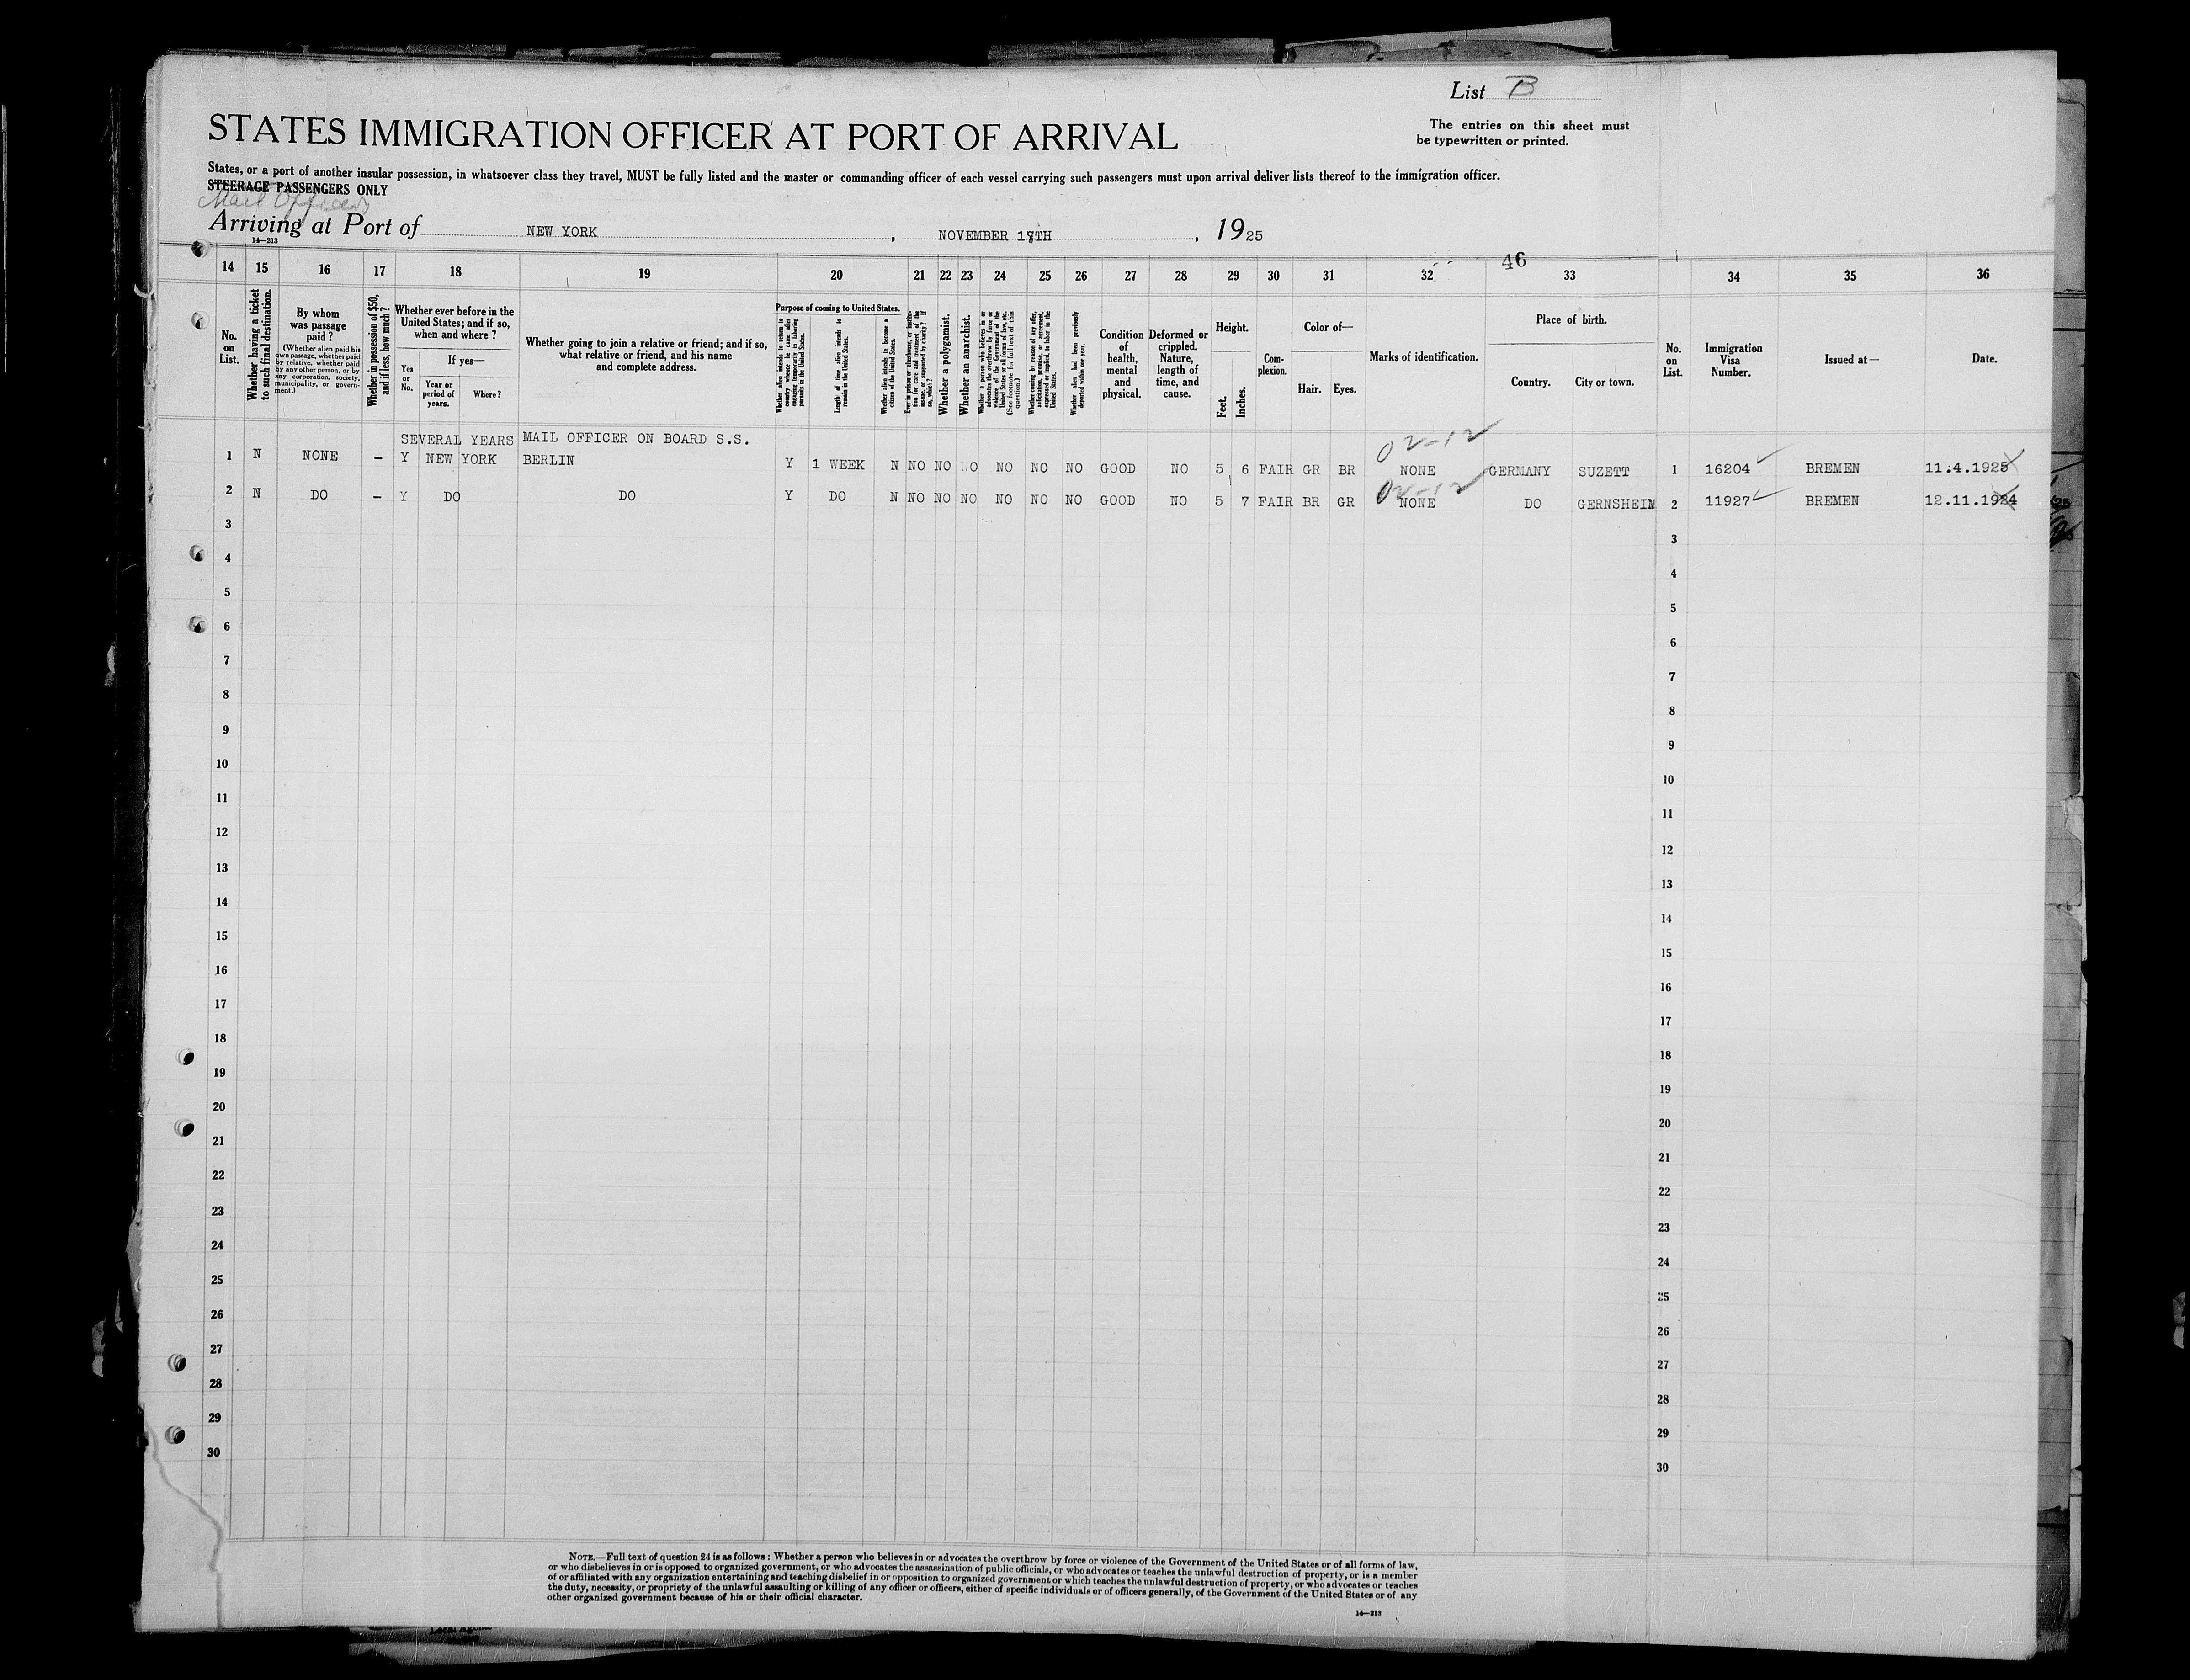 List B
The entries on this sheet must
be typewritten or printed.
STATES IMMIGRATION OFFICER AT PORT OF ARRIVAL
States, or a port of another insular possession, in whatsoever class they travel, MUST be fully listed and the master or commanding officer of each vessel carrying such passengers must upon arrival deliver lists thereof to the immigration officer.
STEERAGE PASSENGERS ONLY
Mail Officers
Arriving at Port of NEW YORK, NOVEMBER 17TH, 1925
14—213
46
14 15 16 17 18 19 20 21 22 23 24 25 26 27 28 29 30 31 32 33 34 35 36
No. on List.
Whether having a ticket to such final destination.
By whom was passage paid?
(Whether alien paid his own passage, whether paid by relative, whether paid by any other person, or by any corporation, society, municipality, or government.)
Whether in possession of $50, and if less, how much?
Whether ever before in the United States; and if so, when and where?
Yes or No.
If yes—
Year or period of years.
Where?
Whether going to join a relative or friend; and if so, what relative or friend, and his name and complete address.
Purpose of coming to United States.
Whether alien intends to return to country whence he came after engaging temporarily in laboring pursuits in the United States.
Length of time alien intends to remain in the United States.
Whether alien intends to become a citizen of the United States.
Ever in prison or almshouse, or institution for care and treatment of the insane, or supported by charity? If so, which?
Whether a polygamist.
Whether an anarchist.
Whether a person who believes in or advocates the overthrow by force or violence of the Government of the United States or all forms of law, etc. (See footnote for full text of this question.)
Whether coming by reason of any offer, solicitation, promise, or agreement, expressed or implied, to labor in the United States.
Whether alien had been previously deported within one year.
Condition of health, mental and physical.
Deformed or crippled. Nature, length of time, and cause.
Height.
Feet. Inches.
Complexion.
Color of—
Hair. Eyes.
Marks of identification.
Place of birth.
Country. City or town.
No. on List.
Immigration Visa Number.
Issued at—
Date.
SEVERAL YEARS MAIL OFFICER ON BOARD S.S.
02-12
1 N NONE – Y NEW YORK BERLIN Y 1 WEEK N NO NO NO NO NO NO GOOD NO 5 6 FAIR GR BR NONE GERMANY SUZETT 1 16204 BREMEN 11.4.1925
02-12
2 N DO – Y DO DO Y DO N NO NO NO NO NO NO GOOD NO 5 7 FAIR BR GR NONE DO GERNSHEIM 2 11927 BREMEN 12.11.1924
3 3
4 4
5 5
6 6
7 7
8 8
9 9
10 10
11 11
12 12
13 13
14 14
15 15
16 16
17 17
18 18
19 19
20 20
21 21
22 22
23 23
24 24
25 25
26 26
27 27
28 28
29 29
30 30
NOTE.—Full text of question 24 is as follows: Whether a person who believes in or advocates the overthrow by force or violence of the Government of the United States or of all forms of law,
or who disbelieves in or is opposed to organized government, or who advocates the assassination of public officials, or who advocates or teaches the unlawful destruction of property, or is a member
of or affiliated with any organization entertaining and teaching disbelief in or opposition to organized government or which teaches the unlawful destruction of property, or who advocates or teaches
the duty, necessity, or propriety of the unlawful assaulting or killing of any officer or officers, either of specific individuals or of officers generally, of the Government of the United States or of any
other organized government because of his or their official character.
14—213